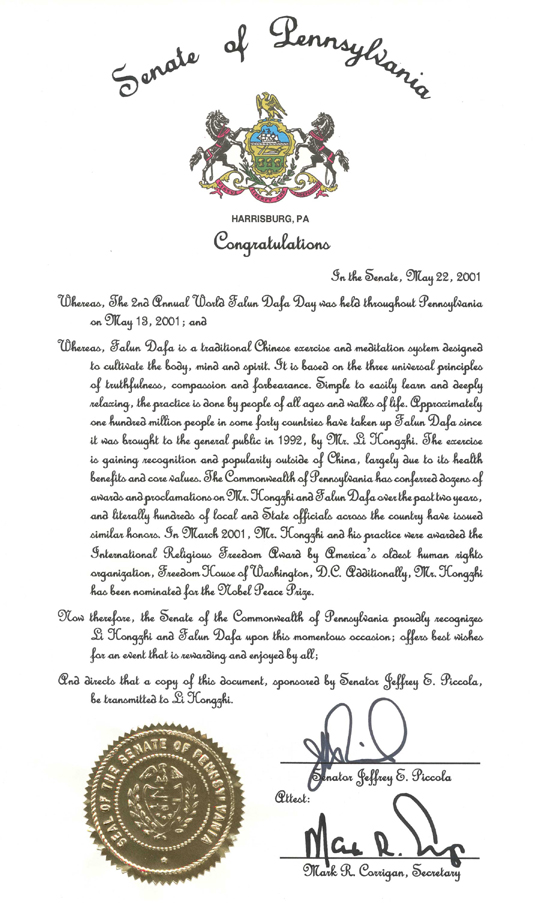 Senate of Pennsylvania
HARRISBURG, PA
Congratulations
In the Senate, May 22, 2001
Whereas, The 2nd Annual World Falun Dafa Day was held throughout Pennsylvania
on May 13, 2001; and
Whereas, Falun Dafa is a traditional Chinese exercise and meditation system designed
to cultivate the body, mind and spirit. It is based on the three universal principles
of truthfulness, compassion and forbearance. Simple to easily learn and deeply
relaxing, the practice is done by people of all ages and walks of life. Approximately
one hundred million people in some forty countries have taken up Falun Dafa since
it was brought to the general public in 1992, by Mr. Li Hongzhi. The exercise
is gaining recognition and popularity outside of China, largely due to its health
benefits and core values. The Commonwealth of Pennsylvania has conferred dozens of
awards and proclamations on Mr. Hongzhi and Falun Dafa over the past two years,
and literally hundreds of local and State officials across the country have issued
similar honors. In March 2001, Mr. Hongzhi and his practice were awarded the
International Religious Freedom Award by America's oldest human rights
organization, Freedom House of Washington, D.C. Additionally, Mr. Hongzhi
has been nominated for the Nobel Peace Prize.
Now therefore, the Senate of the Commonwealth of Pennsylvania proudly recognizes
Li Hongzhi and Falun Dafa upon this momentous occasion; offers best wishes
for an event that is rewarding and enjoyed by all;
And directs that a copy of this document, sponsored by Senator Jeffrey E. Piccola,
be transmitted to Li Hongzhi.
Senator Jeffrey E. Piccola
Attest:
Mark R. Corrigan, Secretary
SEAL OF THE SENATE OF PENNSYLVANIA